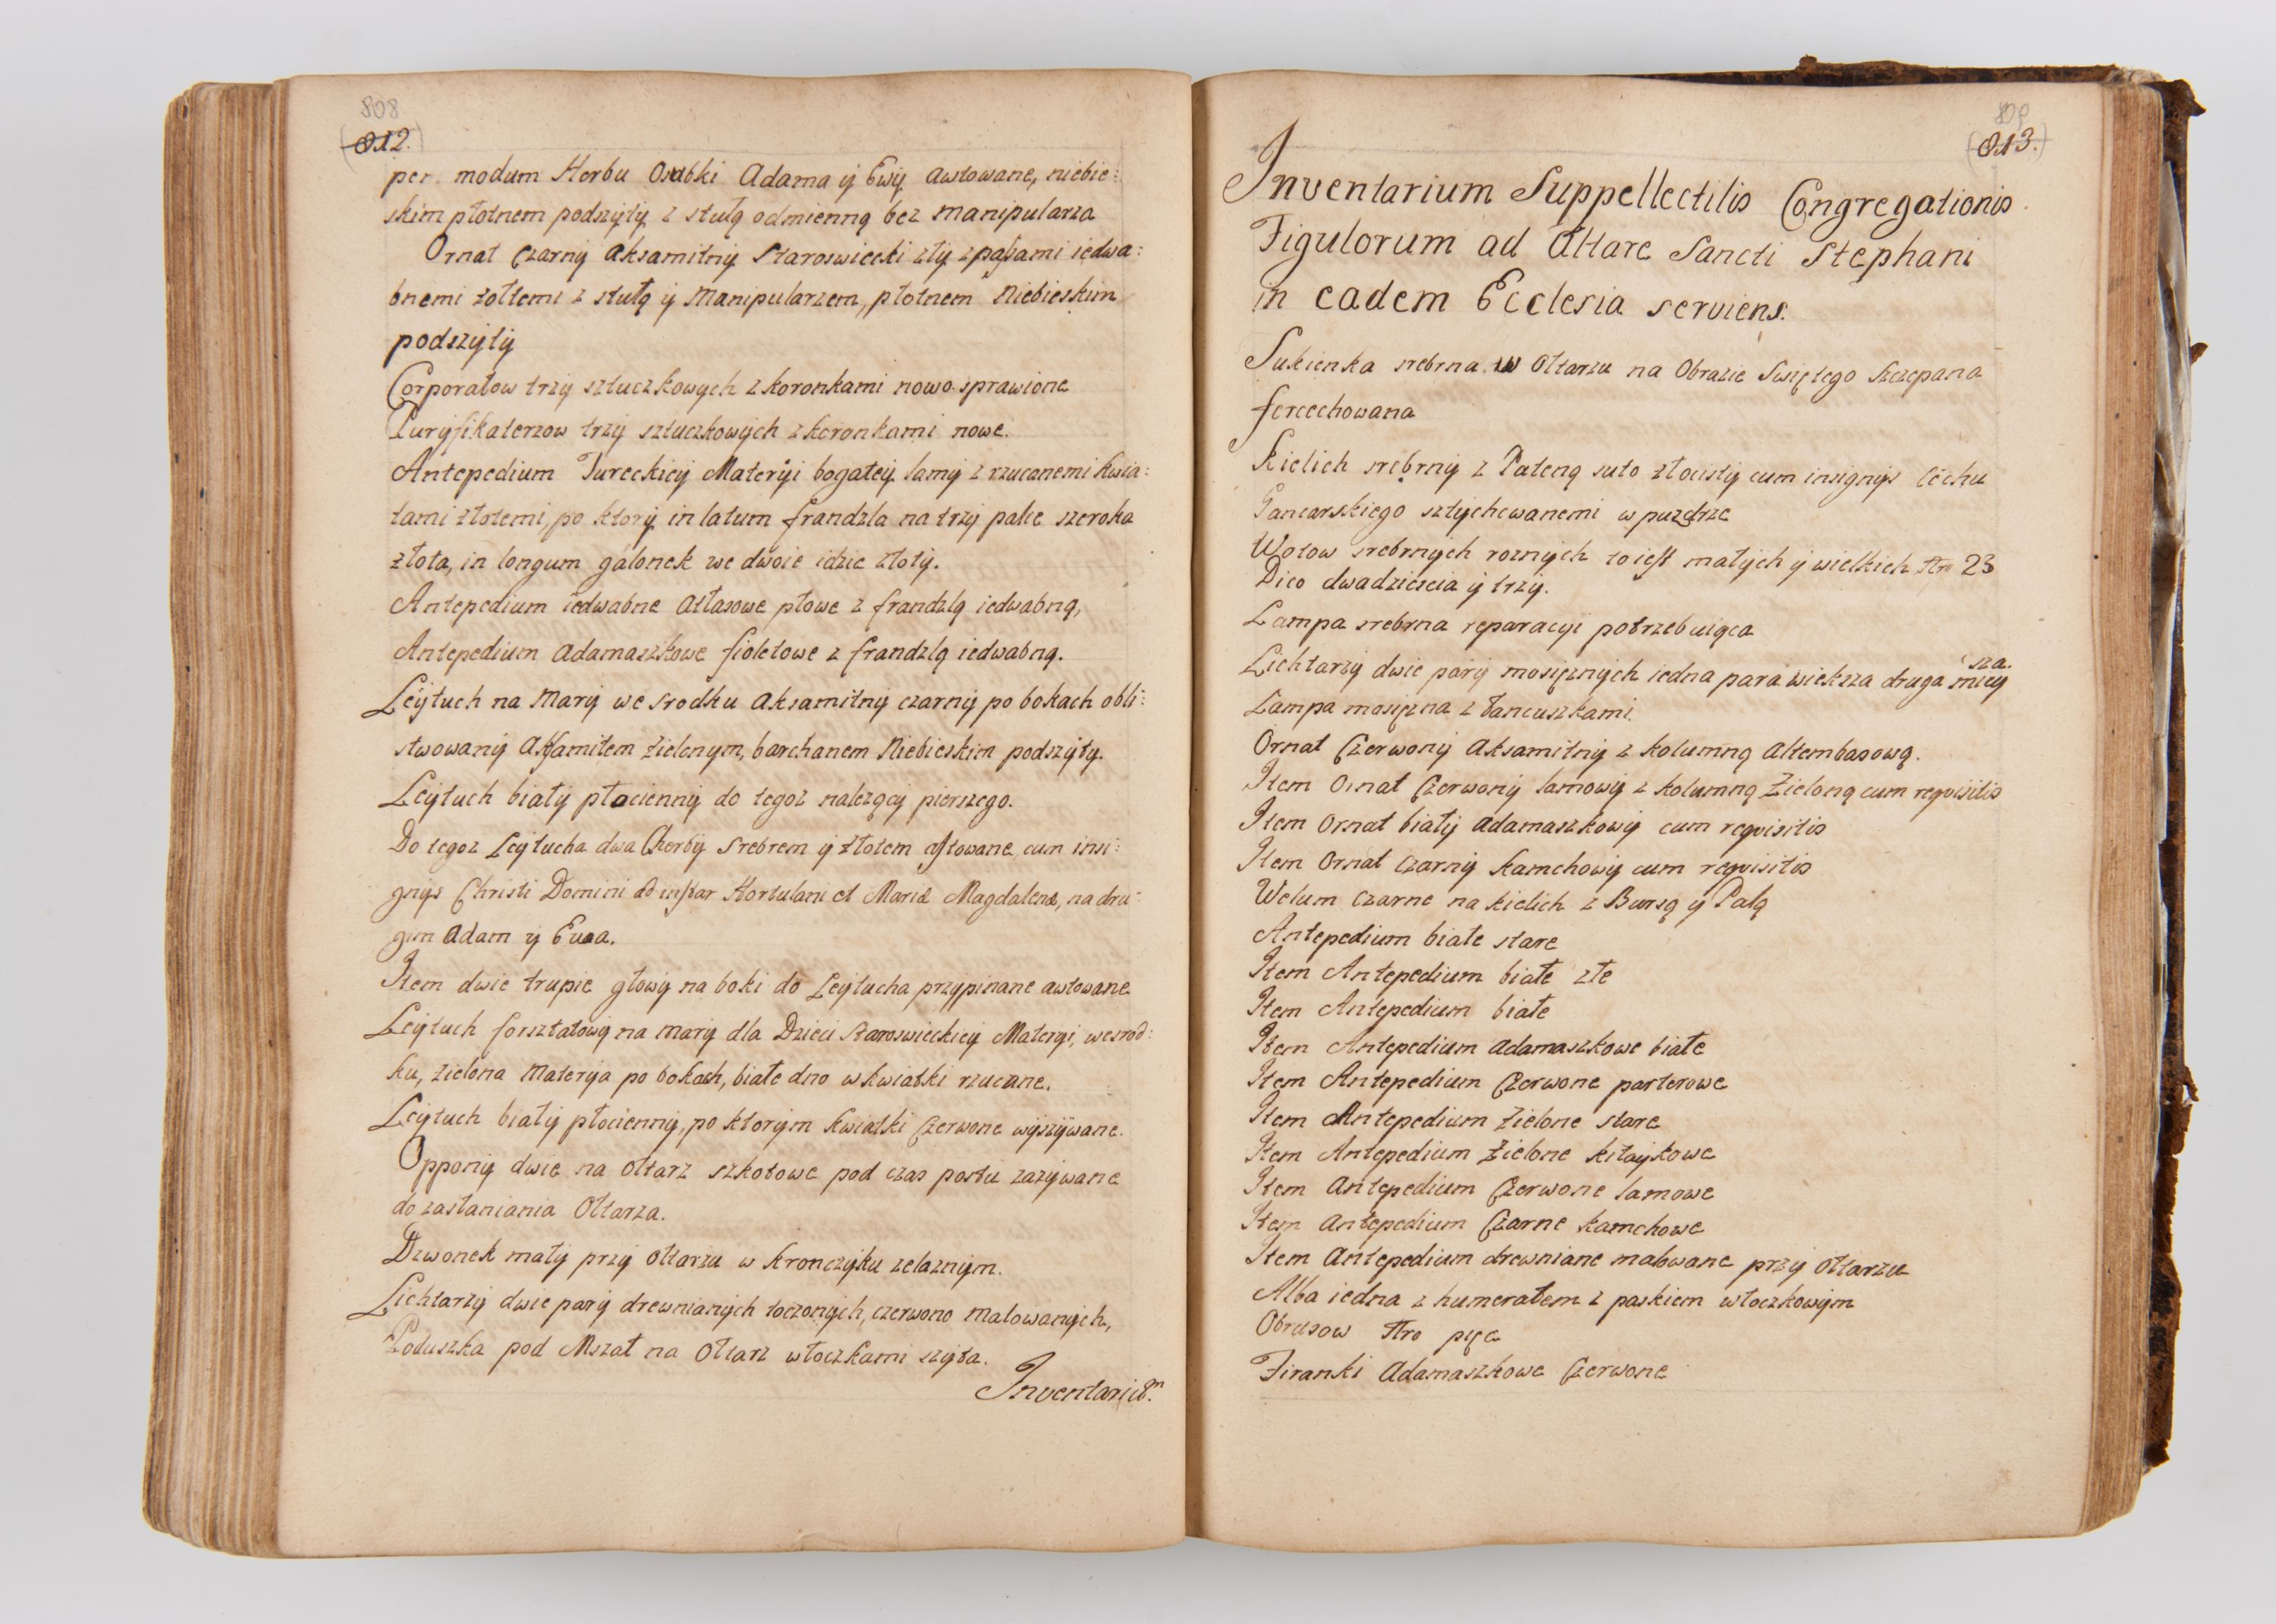 808
812.
per modum Herbu Osobki Adama ÿ Ewÿ awtowane, niebie:
skim płotnem podszÿtÿ z stułą odmienną bez manipularza
Ornat Czarnÿ Aksamitnÿ Staroswiecki złÿ z paſsami iedwa:
bnemi żołtemi z stułą ÿ Manipularzem, płotnem Niebieskim
podszÿtÿ
Corporałow trzÿ sztuczkowÿch z koronkami nowo sprawione
Purÿfikaterzow trzÿ sztuczkowÿch z koronkami nowe.
Antepedium Tureckieÿ Materÿi bogateÿ lamÿ z rzucanemi kwia:
tami złotemi, po ktorÿ in latum frandzla na trzÿ palce szeroka
złota, in longum galonek we dwoie idzie złotÿ.
Antepedium iedwabne Atłasowe płowe z frandzlą iedwabną,
Antepedium Adamaszkowe fioletowe z frandzlą iedwabną.
Leÿtuch na Marÿ we srodku Aksamitnÿ czarnÿ po bokach obli:
stwowanÿ Axamitem Zielonym, barchanem Niebieskim podszÿtÿ.
Leÿtuch białÿ płociennÿ do tegoz nalezącÿ pierszego.
Do tegoz Leÿtucha dwa Cherbÿ Srebrem ÿ złotem aftowane cum insi:
gnÿs Christi Domini ad instar Hortulani et Mariæ Magdalenæ, na dru:
gim Adam ÿ Ewa.
Item dwie trupie głowÿ na boki do Leÿtucha przÿpinane awtowane
Leÿtuch forsztatowÿ na marÿ dla Dzieci Staroswieckieÿ Materÿi, wesrod:
ku, zielona Materÿia po bokach, białe dno w kwiatki rzucane.
Leÿtuch białÿ płociennÿ, po ktorÿm kwiatki Czerwone wÿszÿwane.
Opponÿ dwie na Ołtarz szkotowe pod czas postu zazÿwane
do zasłaniania Ołtarza.
Dzwonek małÿ przÿ Ołtarzu w kronczÿku zelaznÿm.
Lichtarzÿ dwie parÿ drewnianÿch toczonÿch, czerwono malowanÿch,
Poduszka pod Mszał na Ołtarz włoczkami szÿta.
Inventariũm.
809
813.
Inventarium Suppellectilis Congregationis
Figulorum ad Altare Sancti Stephani
in eadem Ecclesia serviens.
Sukienka srebrna w Ołtarzu na Obrazie Swiętego Szczepana
forcechowana
Kielich srebrnÿ z Pateną suto złocistÿ cum insignÿs Cechu
Gancarskiego sztÿchowanemi w puzdrze
Wotow srebrnÿch roznÿch to iest małÿch ÿ wielkich Nro 23
Dico dwadziescia ÿ trzÿ.
Lampa srebrna reparacÿi potrzebuiąca
sza.
Lichtarzÿ dwie parÿ mosięznÿch iedna para wieksza druga mnieÿ
Lampa mosięzna z łancuszkami.
Ornat Czerwonÿ Aksamitnÿ z kolumną Altembasową.
Item Ornat Czerwonÿ lamowÿ z kolumną Zieloną cum reqvisitis
Item Ornat białÿ Adamaszkowÿ cum reqvisitis
Item Ornat Czarnÿ Kamchowÿ cum reqvisitis
Welum Czarne na kielich z Bursą ÿ Palą
Antepedium białe stare
Item Antepedium białe złe
Item Antepedium białe
Item Antepedium Adamaszkowe białe
Item Antepedium Czerwone parterowe
Item Antepedium Zielone stare
Item Antepedium Zielone kitaÿkowe
Item Antepedium Czerwone lamowe
Item Antepedium Czarne kamchowe
Item Antepedium drewniane malowane przÿ Ołtarzu
Alba iedna z humerałem z paskiem włoczkowÿm
Obrusow Nro pięc
Firanki Adamaszkowe Czerwone